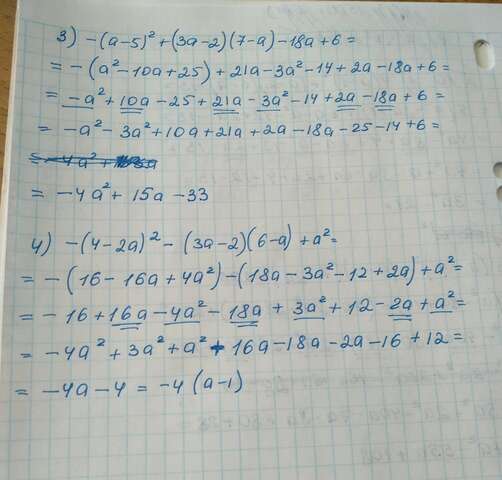 3) -(a-5)² + (3a-2)(7-a) - 18a + 6 =
= -(a² - 10a + 25) + 21a - 3a² - 14 + 2a - 18a + 6 =
= -a² + 10a - 25 + 21a - 3a² - 14 + 2a - 18a + 6 =
= -a² - 3a² + 10a + 21a + 2a - 18a - 25 - 14 + 6 =
= -4a² + 15a - 33
4) -(4-2a)² - (3a-2)(6-a) + a² =
= -(16 - 16a + 4a²) - (18a - 3a² - 12 + 2a) + a² =
= -16 + 16a - 4a² - 18a + 3a² + 12 - 2a + a² =
= -4a² + 3a² + a² + 16a - 18a - 2a - 16 + 12 =
= -4a - 4 = -4(a-1)